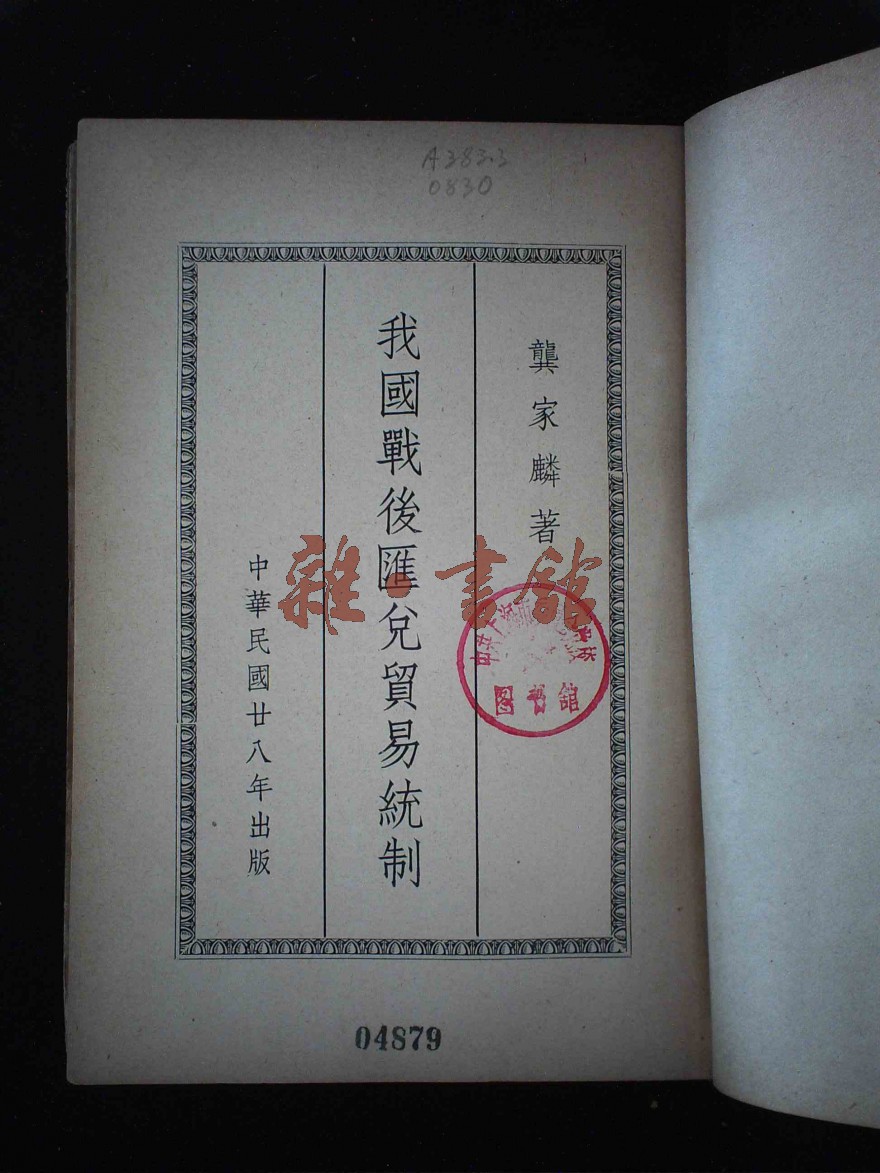 A383.3
0830
龔家麟著
我國戰後匯兌貿易統制
中華民國廿八年出版
雜·書館
图书馆
04879